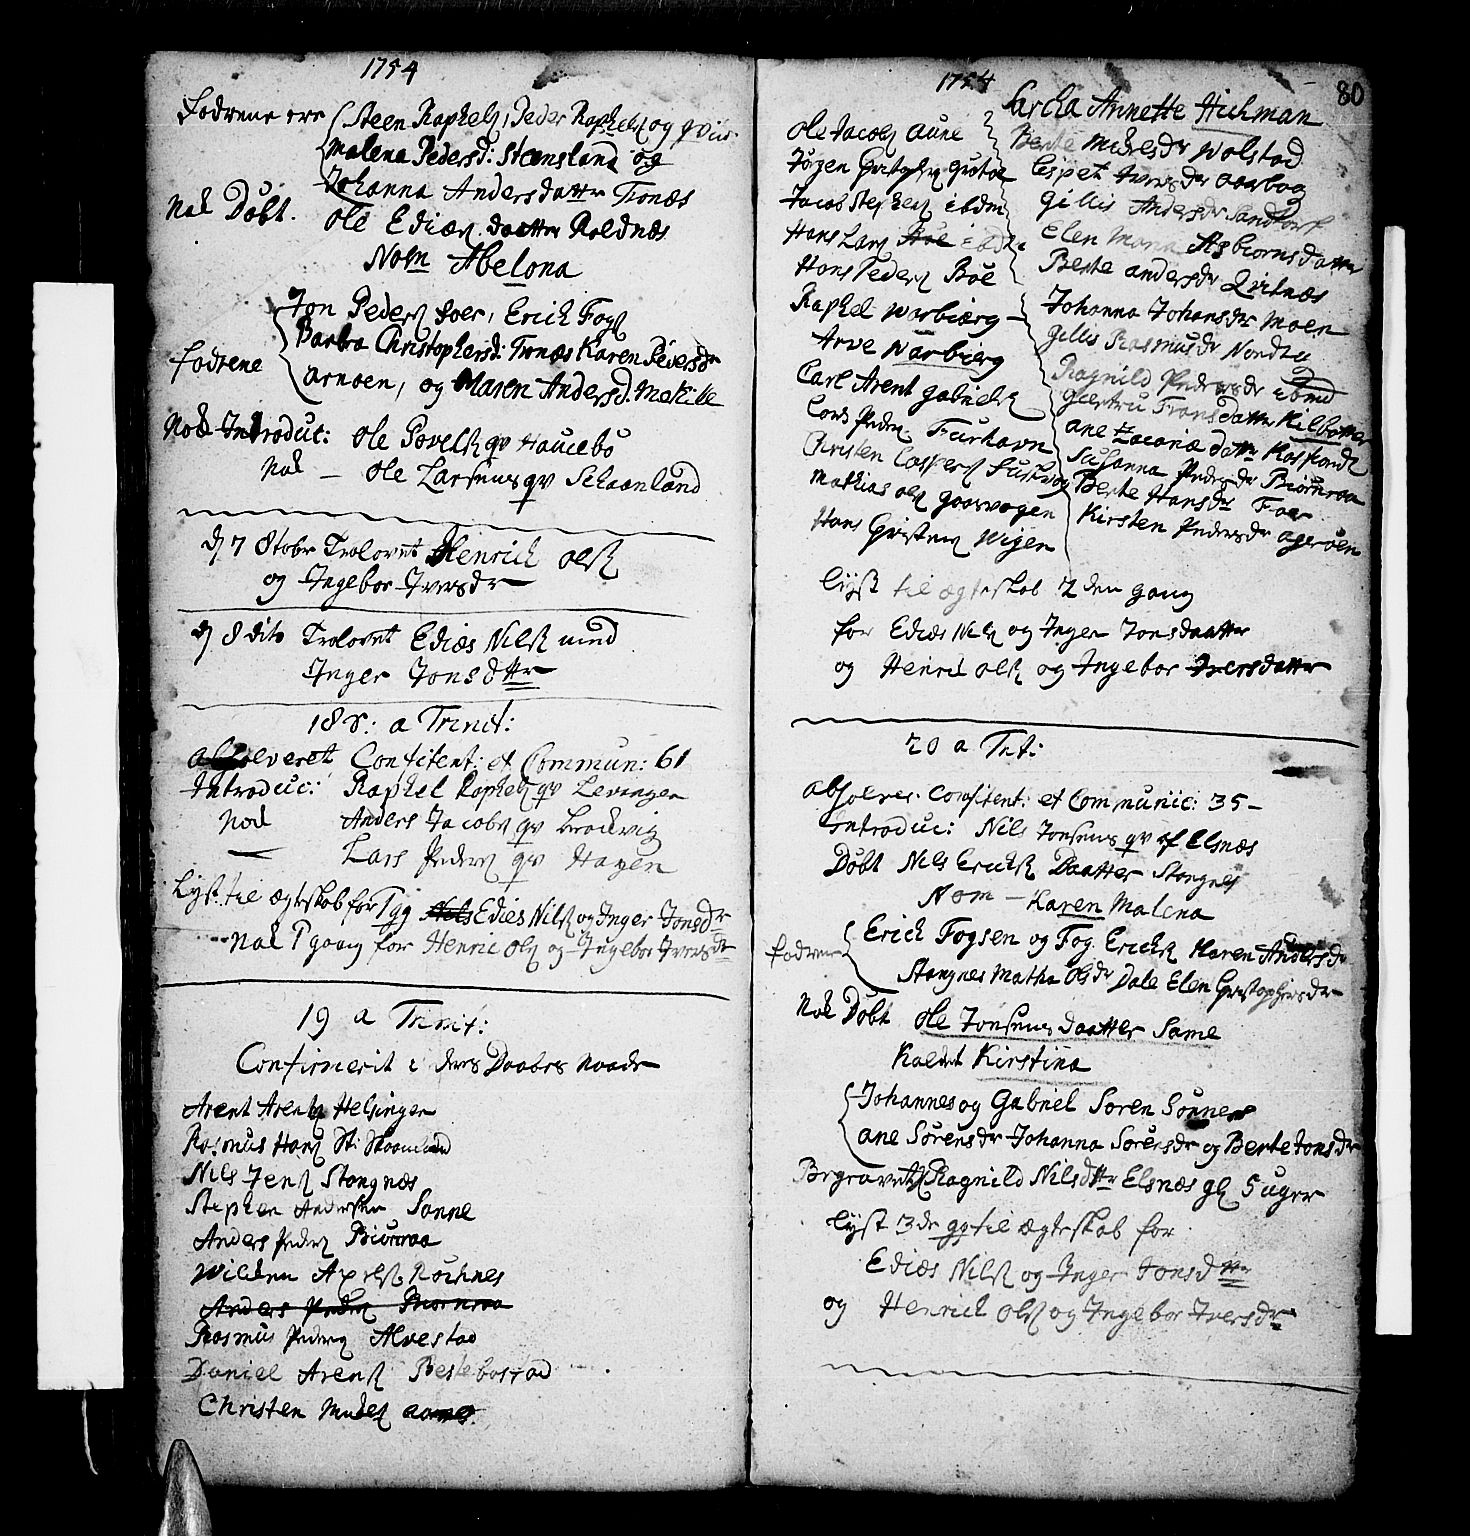 1754
fadrene ere Steen Raphelß, Peder Raphelß og qviv.
Malena Pedersd: Steensland og
Johanna Andersdatter Tronæs
Nok Døbt. Ole Ediæß. daatter Roldnæs
Nom Abelona
Jon Pederß soer, Erich Fogß
fadrene Barbra Christophersd: Tronæs Karen Pedersdr
arnøen, og Maren Andersd.
Nok Introduc: Ole Povelß qv Haucebø
Nok — Ole Larsens qv Schaanland
dj 7 8tobr Trolovet Henrich Olß
og Ingebor Iversdr
dj 8 dito Trolovet Ediæs Nilß med
Inger Jonsdttr
18 a Trinit:
absolveret Confitent: et Commun: 61
Introduc: Raphel Raphelß qv Levingen
Nok Anders Jacobß qv Brockvig
— Lars Pederß qv Hagen
Lyst til ægteskab for Ediæs Nilß og Inger Jonsdr
Nok gaang for Henric Olß og Ingebor Iversdr
19 a Trinit:
Confirmerit i deres Daabes Naade
Arent Arentß Helsingen
Rasmus Hanß St: Skaanland
Nils Jenß Stangnæs
Stephen Andersen Sanne
Anders Pederß Biørnraa
Willem Axelß Rochnes
Anders Pederß Biørnraa
Rasmus Pederß Alvestad
Daniel Arenß Bestebostad
Christen Mickelß
1754
80
Ole Jacobß Aune
Jørgen Christophß
Jacob Stephenß ibdm
Hans Larß Bøe
Hans Pederß Bøe
Raphel Warbiærg
Arve Warbierg
Carl Arent Gabrielß
Lars Pederß Furhavn
Christen Casperß
Mathias Olß Gaasvogen
Hans Christenß Wigen
Sarcha Annette Hichman
Berte Michelsdr Wolstad
Lispet Iversdr Aarbog
Gillis Andersdr Sandtorf
Elen Maria Asbiornsdatter
Berte Andersdr Qvitnæs
Johanna Johansdr Moen
Gillis Rasmusdr
Ragnild Pedersdr ibmd
Giertru Fransdatter Kilbotten
Ane Zacariæ datter
Susanna Pedersdr Biørnraa
Berte Hansdr
Kirsten Pedersdr Ageroen
lyst til ægteskab 2den gang
for Ediæs Nilß og Inger Jonsdaatter
og Henric Olß og Ingebor Iversdatter
20 a Trit:
absolver. Confitent: et Communic: 35 —
Introduc: Nils Jonsens qv af Elsnæs
Døbt Nils Erichß Daatter Stangnes
Nom — Karen Malena
fadrene Erich Fogsen og Fog Erichß Maren Andersdr
Stangnes Martha Olsdr Dale Elen Christophersdr
Nok Døbt Ole Jonsens daatter Same
Kaldet Kirstina
Johannes og Gabriel Søren Sønner
ane Sørensdr Johanna Sørensdr og Berte Jonsdr
Begravet Ragnild Nilsdttr Elsnæs gl 5 uger
lyst 3de gg til ægteskab for
Ediæs Nilß og Inger Jonsdttr
og Henrich Olß og Ingebor Iversdr